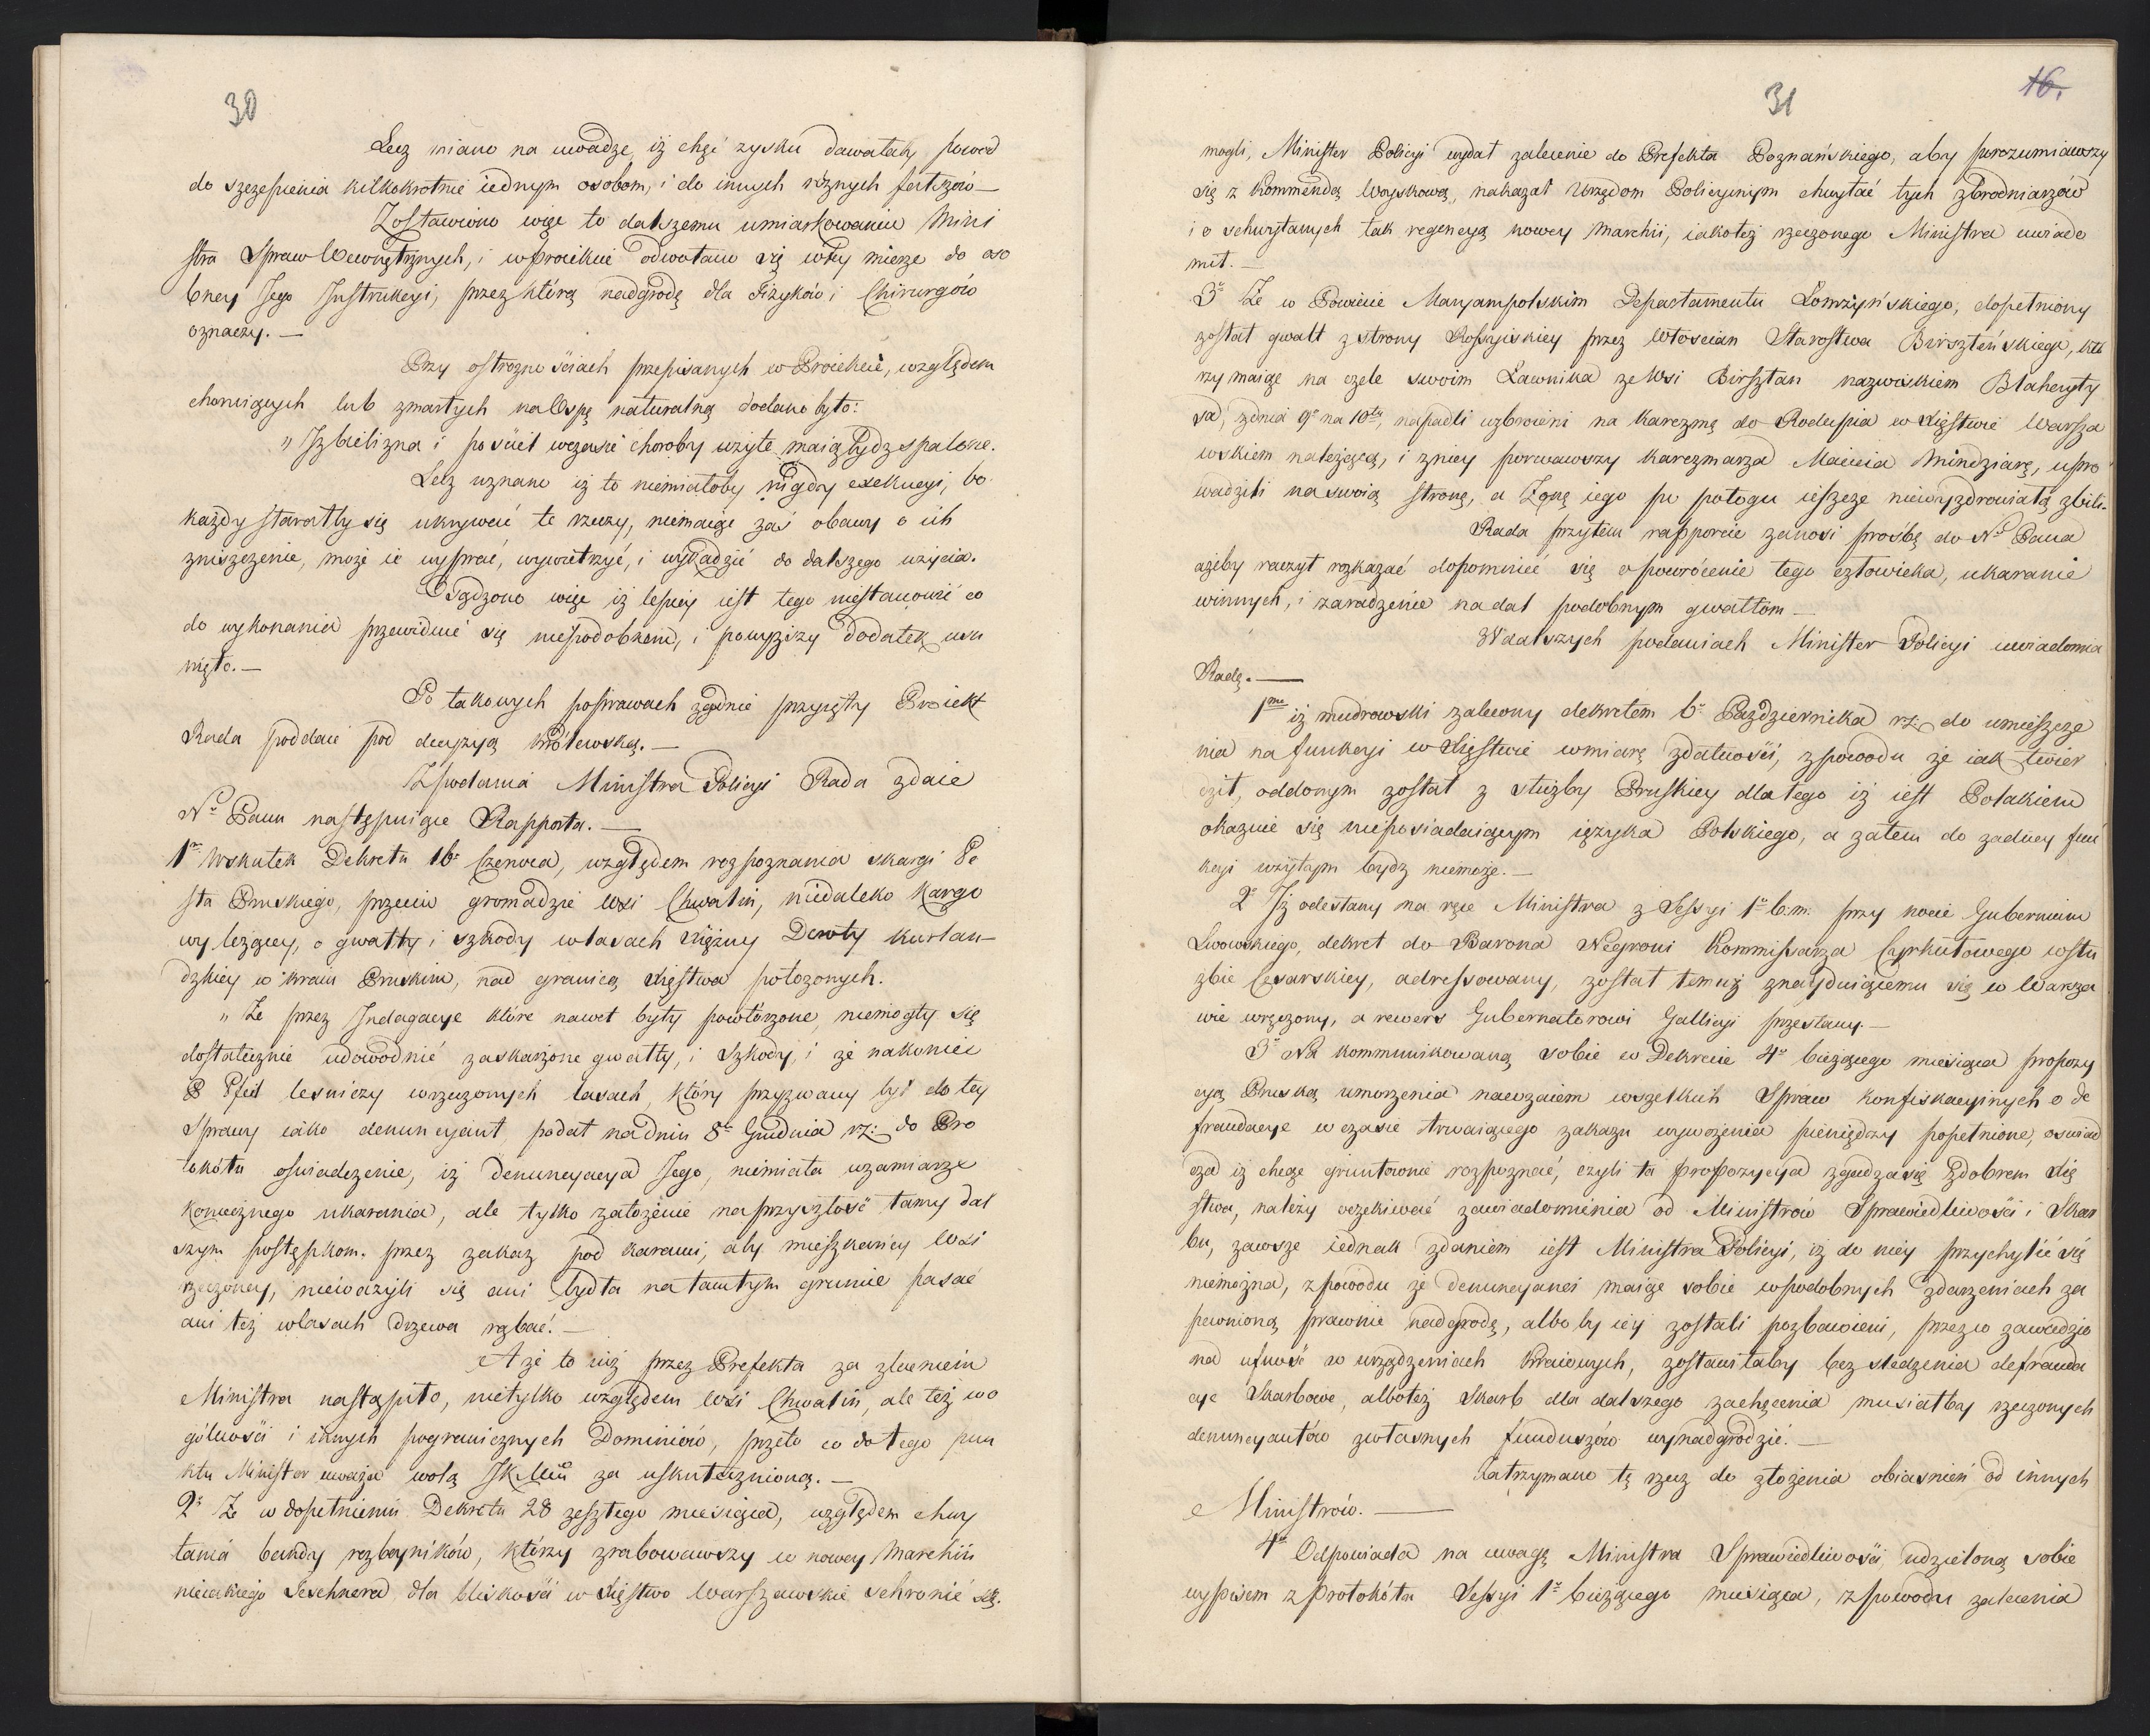 30
Lecz miano na uwadze, iż chęć zysku dawałaby powod
do szczepienia kilkokrotnie iednym osobom, i do innych różnych fortszów—
Zostawiono więc to dalszemu umiarkowaniu Mini
stra Spraw Wewnętrznych, i w proiekcie odwołano się w tey mierze do oso
bney Jego Instrukcyi, przez którą nadgrodę dla Fizyków i Chirurgów
oznaczy.—
Przy ostrożnościach przepisanych w Proiekcie, względem
choruiących lub zmarłych na Ospę naturalną dodano było:
„ Iż bielizna i pościel w czasie choroby użyte maią bydz spalone.
Lecz uznano iż to niemiałoby nigdy exekucyi, bo
każdy starałby się ukrywać te rzeczy, niemaiąc zaś obawy o ich
zniszczenie, może ie wyprać, wywietrzyć, i wykadzić do dalszego użycia.
Osądzono więc iż lepiey iest tego niestanowić co
do wykonania przewidzieć się niepodobném, i powyższy dodatek usu
nięto.—
Po takowych poprawach zgodnie przyięty Proiekt
Rada poddaie pod decyzyą Królewską.—
Z podania Ministra Policyi Rada zdaie
Nº Panu następuiące Rapporta.—
1º Wskutek Dekretu 16º Czerwca, względem rozpoznania skargi Po
sła Pruskiego, przeciw gromadzie wsi Chwalin, niedaleko Kargo
wy leżącey, o gwałty i szkody w lasach Xiężny Doroty Kurlan—
dzkiey w kraiu Pruskim, nad granicą Xięstwa położonych.
„ Że przez Indagacye które nawet były powtórzone, niemogły się
dostatecznie udowodnić zaskarżone gwałty, i szkody, i że nakoniec
P Pfeil leśniczy w rzeczonych lasach, który przyzwany był do tey
Sprawy iako denuncyant, podał na dniu 8º Grudnia r.z: do Pro
tokółu oświadczenie, iż denuncyacya Jego, niemiała w zamiarze
koniecznego ukarania, ale tylko założenie na przyszłość tamy dal
szym postępkom. przez zakaz pod karami, aby mieszkańcy wsi
rzeczoney, nieważyli się ani bydła na tamtym gruncie pasać
ani też w lasach drzewa rąbać.—
A że to iuż przez Prefekta za zleceniem
Ministra nastąpiło, nietylko względem wsi Chwalin, ale też w o
gólności i innych pogranicznych Dominiów, przeto co do tego pun
ktu Minister uważa wolą JKMci za uskutecznioną.—
2º Że w dopełnieniu Dekretu 28 zeszłego miesiąca, względem chwy
tania bandy rozboyników, którzy zrabowawszy w nowey Marchii
nieiakiego Seschnera, dla bliskości w Xięstwo Warszawskie schronić się.
31
16.
mogli, Minister Policyi wydał zalecenie do Prefekta Poznańskiego, aby porozumiawszy
się z Kommendą Woyskową, nakazał Urzędom Policyinym chwytać tych zbrodniarzów
i o schwytanych tak regencyą nowey Marchii, iakoteż rzeczonego Ministra uwiado
mił.—
3º Że w Powiecie Maryampolskim Departamentu Łomżyńskiego, dopełniony
został gwałt z strony Rossyiskiey przez Włościan Starostwa Birsztańskiego, któ
rzy maiąc na czele swoim Ławnika ze Wsi Birsztan nazwiskiem Błaheryty
sa, z dnia 9º na 10ty, napadli uzbroieni na karczmę do Rodupia w Xięstwie Warsza
wskiem należącą, i z niey porwawszy karczmarza Macieia Mindziarę, upro
wadzili na swoią stronę, a Żonę iego po połogu ieszcze niewyzdrowiałą zbili.
Rada przytem rapporcie zanosi prośbę do Nº Pana
ażeby raczył rozkazać dopomnieć się o powrócenie tego człowieka, ukaranie
winnych, i zaradzenie nadal podobnym gwałtom—
W dalszych podaniach Minister Policyi uwiadomia
Radę.—
1mo iż Mudrowski zalecony dekretem 6º Października r.z: do umieszcze
nia na funkcyi w Xięstwie w miarę zdatności, z powodu że iak twier
dził, oddalonym został z służby Pruskiey dla tego iż iest Polakiem
okazuie się nieposiadaiącym ięzyka Polskiego, a zatem do żadney fun
kcyi użytym bydz niemoże.—
2º Iż odesłany na ręce Ministra z Sessyi 1º b.m. przy nocie Gubernium
Lwowskiego, dekret do Barona Negroni Kommissarza Cyrkułowego w słu
żbie Cesarskiey, adressowany, został temuż znayduiącemu się w Warsza
wie wręczony, a rewers Gubernatorowi Gallicyi przesłany.—
3º Na kommunikowaną sobie w Dekrecie 4º bieżącego miesiąca propozy
cyą Pruską umorzenia nawzaiem wszelkich Spraw konfiskacyinych o de
fraudacye w czasie trwaiącego zakazu wywożenia pieniędzy popełnione, oswiad
cza iż chcąc gruntownie rozpoznać, czyli ta propozycya zgadza się z dobrem Xię
stwa, należy oczekiwać zawiadomienia od Ministrów Sprawiedliwości i Skar
bu, zawsze iednak zdaniem iest Ministra Policyi, iż do niey przychylić się
niemożna, z powodu że denuncyanci maiąc sobie w podobnych zdarzeniach za
pewnioną prawnie nadgrodę, alboby iey zostali pozbawieni, przez co zawiedzio
na ufność w urządzeniach Kraiowych, zostawiłaby bez śledzenia defrauda
cye Skarbowe, alboteż Skarb dla dalszego zachęcenia musiałby rzeczonych
denuncyantów z własnych funduszów wynadgrodzić.—
Zatrzymano tę rzecz do złożenia obiaśnień od innych
Ministrów.—
4º Odpowiada na uwagę Ministra Sprawiedliwości, udzieloną sobie
wypisem z Protokółu Sessyi 1º bieżącego miesiąca, z powodu zalecenia